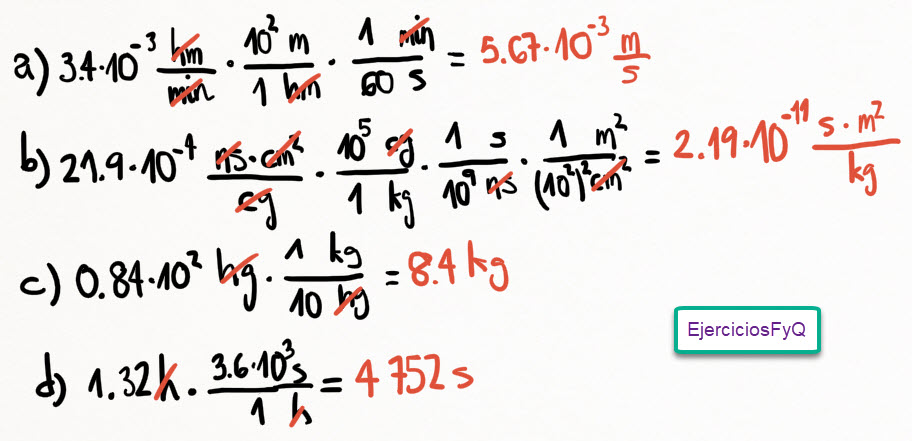 a) 3.4·10⁻³ hm/min · 10² m/1 hm · 1 min/60 s = 5.67·10⁻³ m/s
b) 21.9·10⁻⁴ ns·cm²/cg · 10⁵ cg/1 kg · 1 s/10⁹ ns · 1 m²/(10²)² cm² = 2.19·10⁻¹¹ s·m²/kg
c) 0.84·10² hg · 1 kg/10 hg = 8.4 kg
EjerciciosFyQ
d) 1.32 h · 3.6·10³ s/1 h = 4 752 s